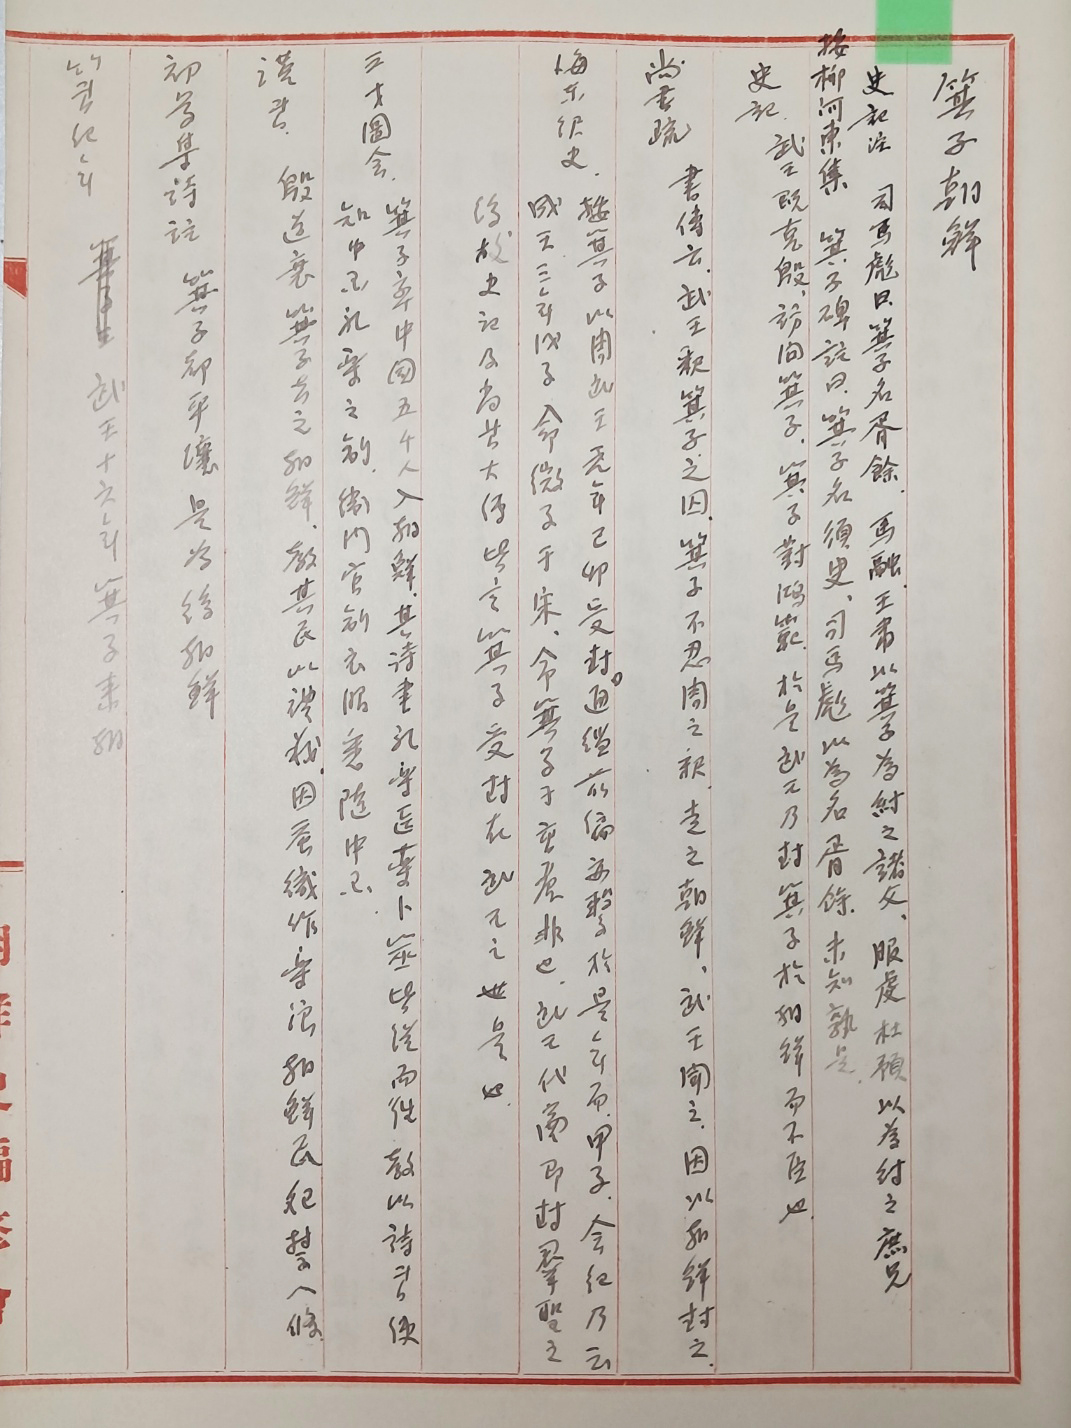 箕子朝鮮
史記注 司馬彪曰箕子名胥餘．馬融．王肅以箕子為紂之諸父、服虔杜預以為紂之庶兄
按柳河東集 箕子碑註曰．箕子名須臾、司馬彪以為名胥餘．未知孰是．
史記． 武王既克殷、訪问箕子．箕子對鴻範．於是武王乃封箕子於朝鮮而不臣也．
尚書疏 書傳云．武王釈箕子之囚．箕子不忍周之釈．走之朝鮮、武王聞之．因以朝鮮封之．
海东绎史． 按箕子以周武王元年己卯受封。通鑑前编亦繫於是年而．甲子．会紀乃云
成王三年戊子 命微子于宋、命箕子于 非也．武王代商即封羣聖之
後 故史記及尚书大傳皆言箕子受封在武王之世是也．
三才圖会． 箕子率中國五千人入朝鮮．其詩書礼乐医藥卜筮皆從而往 教以詩书使
知中国礼乐之制．衙门官制衣服悉随中国．
漢书． 殷道衰箕子去之朝鮮．教其民以禮義．田蚕織作 乐浪朝鮮民犯禁八條．
初学集詩註 箕子都平壤是为後朝鮮
竹書紀年 武王十六年箕子来朝
朝鮮史編修會